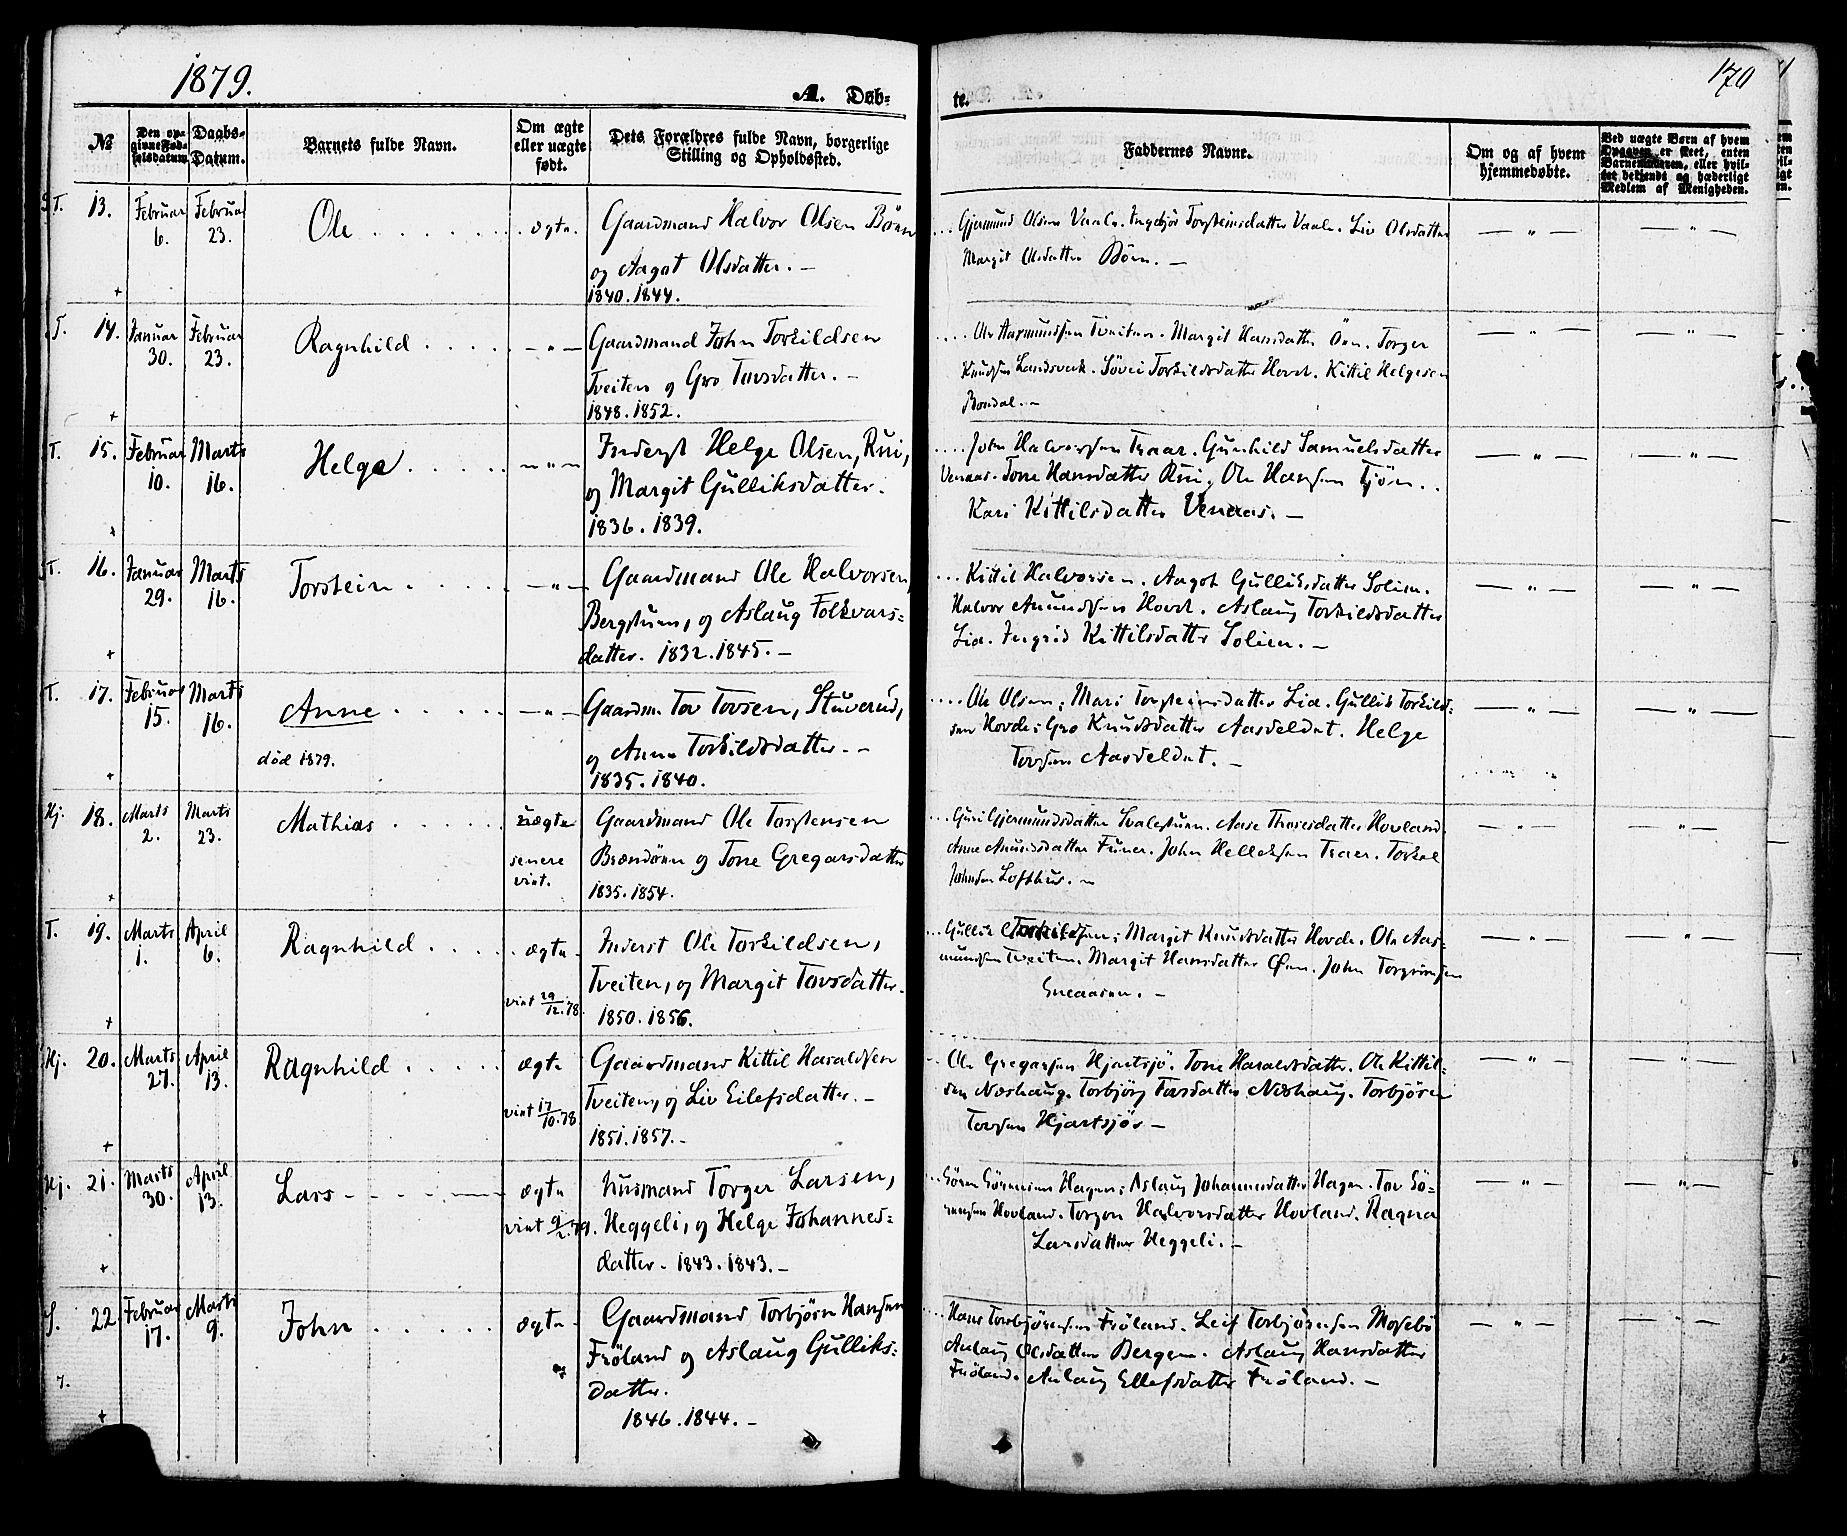 1879.
A. Døb-
№
Den opgivne Fødselsdatum.
Daabs-Datum.
Barnets fulde Navn.
Om ægte eller uægte født.
Dets Forældres fulde Navn, borgerlige Stilling og Opholdssted.
13. Februar 6. Februar 23. Ole ægte. Gaardmand Halvor Olsen Børn
og Aagot Olsdatter. —
1840. 1844.
T. 14. Januar 30. Februar 23. Ragnhild — " — Gaardmand John Torkildsen
Tveiten og Gro Tovsdatter. —
1848. 1852.
T. 15. Februar 10. Marts 16. Helge — " — Inderst Helge Olsen, Rui,
og Margit Gulliksdatter.
1836. 1839.
T. 16. Januar 29. Marts 16. Torstein — " — Gaardmand Ole Halvorsen,
Bergstuen, og Aslaug Folkvars-
datter. 1832. 1845. —
T. 17. Februar 15. Marts 16. Anne — " — Gaardm. Tov Tovsen, Stuverud,
død 1879. og Anne Torkildsdatter. —
1835. 1840.
Hj. 18. Marts 2. Marts 23. Mathias uægte Gaardmand Ole Torstensen
senere Brændøen og Tone Gregarsdatter
vint. 1835. 1854.
T. 19. Marts 1. April 6. Ragnhild ægte Inderst Ole Torkildsen,
Tveiten, og Margit Tovsdatter.
vint 29/12.78. 1850. 1856.
Hj. 20. Marts 27. April 13. Ragnhild ægte Gaardmand Kittil Haraldsen
vint 17/10.78 Tveiten, og Liv Eilefsdatter. —
1851. 1857. —
Hj. 21. Marts 30. April 13. Lars ægte Husmand Torger Larsen,
vint 9/2.79. Heggeli, og Helge Johannes-
datter. 1843. 1843. —
S. 22. Februar 17. Marts 9. John ægte Gaardmand Torbjørn Hansen
Frøland og Aslaug Gulliks-
7. datter.
1846. 1844. —
te.
170
Faddernes Navne.
Om og af hvem hjemmedøbte.
Ved uægte Børn af hvem Opgaven er skeet, enten Barnemoderen, eller hvilket bekjendt og hæderligt Medlem af Menigheden.
Gjermund Olsen Vaale. Ingebjør Torsteinsdatter Vaale. Liv Olsdatter — " — — " —
Margit Olsdatter Børn. —
Ole Aasmundsen Tveiten. Margit Hansdatter Øen. Torger — " — — " —
Knudsen Landsverk. Søvei Torkildsdatter Hovde. Kittil Helgesen
Bondal. —
John Halvorsen Traar. Gunhild Samuelsdatter — " — — " —
Venaas. Tone Hansdatter Rui. Ole Hansen Tjøn.
Kari Kittilsdatter Venaas. —
Kittil Halvorsen. Aagot Gulliksdatter Solien. — " — — " —
Halvor Amundsen Hovde. Aslaug Torkildsdatter
Lia. Ingrid Kittilsdatter Solien. —
Ole Olsen, Mari Torsteinsdatter Lia. Gullik Torkild- — " — — " —
sen Hovde, Gro Knudsdatter Aasdeldet. Helge
Tovsen Aasdeldet. —
Guri Gjermundsdatter Svalestuen. Aase Thoresdatter Hovland. — " — — " —
Anne Amundsdatter Funer. John Helleksen Traer. Torkel
Johnsen Lofthus. —
Gullik Torkildsen, Margit Knudsdatter Hovde. Ole Aas- — " — — " —
mundsen Tveiten. Margit Hansdatter Øen. John Torgrimsen
Gneaasen. —
Ole Gregarsen Hjartsjø. Tone Haraldsdatter. Ole Kittil- — " — — " —
sen Næshaug. Torbjørg Tovsdatter Næshaug. Torbjørn
Tovsen Hjartsjø —
Søren Sørensen Hagen, Aslaug Johannesdatter Hagen. Tov Sø- — " — — " —
rensen Hovland. Torgon Halvorsdatter Hovland. Ragna
Larsdatter Heggeli. —
Hans Torbjørnsen Frøland. Leif Torbjørnsen Mosebø — " — — " —
Anlaug Olsdatter Bergen. Aslaug Hansdatter
Frøland. Anlaug Ellefsdatter Frøland. —